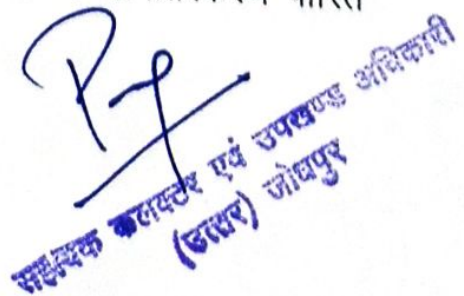 सहायक कलक्टर एवं उपखण्ड अधिकारी
(उत्तर) जोधपुर